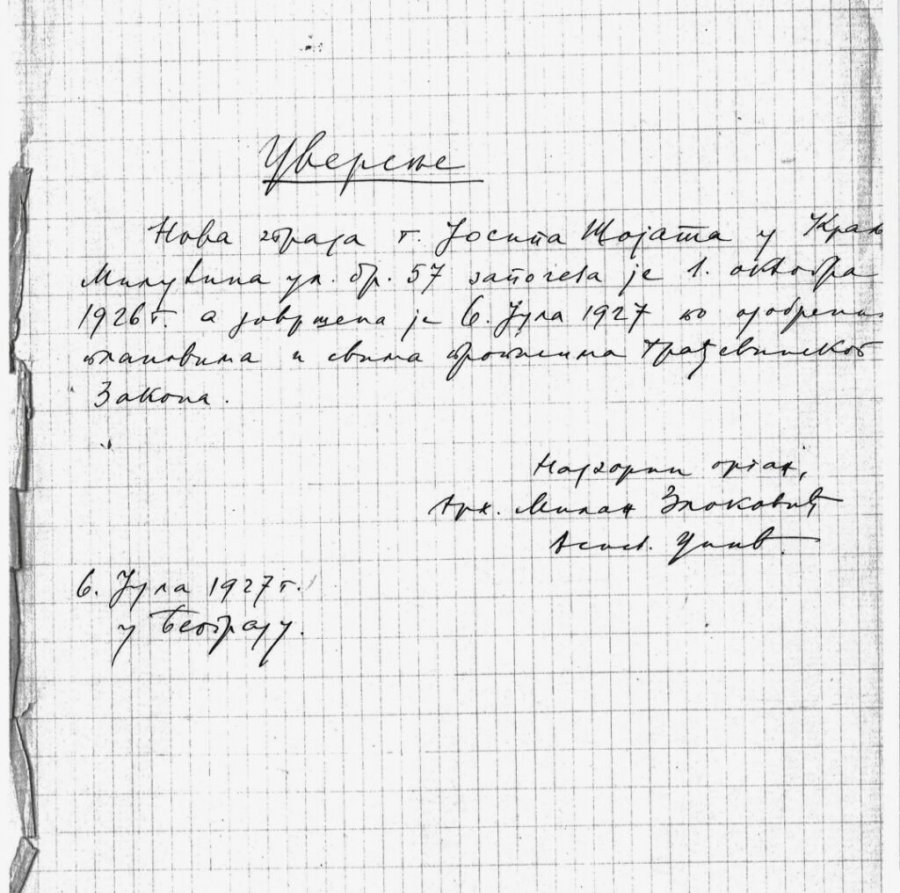 Уверење
Нова зграда г. Јосипа Шојата у Краљ
Милутина ул. бр. 57 започета је 1. октобра
1926 г. а довршена је 6. Јула 1927 по одобрени
плановима и свима прописима Грађевинског
Закона.
Надзорни орган,
Арх. Милан Злоковић
Асист. Унив.
6. Јула 1927 г.
у Београду.